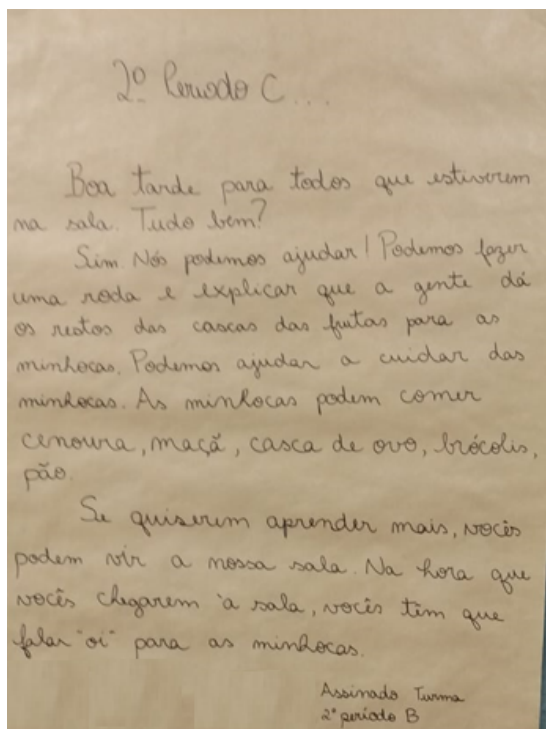 2º Período C...
Boa tarde para todos que estiverem
na sala. Tudo bem?
Sim. Nós podemos ajudar! Podemos fazer
uma roda e explicar que a gente dá
os restos das cascas das frutas para as
minhocas. Podemos ajudar a cuidar das
minhocas. As minhocas podem comer
cenoura, maçã, casca de ovo, brócolis,
pão.
Se quiserem aprender mais, vocês
podem vir a nossa sala. Na hora que
vocês chegarem à sala, vocês têm que
falar "oi" para as minhocas.
Assinado Turma
2º período B